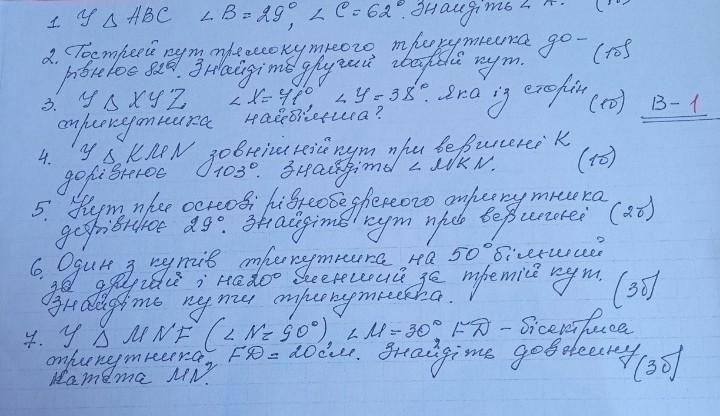 1. У △ ABC ∠B=29°, ∠C=62°. Знайдіть ∠
2. Гострий кут прямокутного трикутника до-
рівнює 82°. Знайдіть другий гострий кут. (1б)
3. У △ XYZ ∠X=71°, ∠Y=38°. Яка із сторін
трикутника найбільша? (1б) В-1
4. У △ KMN зовнішній кут при вершині K
дорівнює 103°. Знайдіть ∠MKN. (1б)
5. Кут при основі рівнобедреного трикутника
дорівнює 29°. Знайдіть кут при вершині (2б)
6. Один з кутів трикутника на 50° більший
за другий і на 20° менший за третій кут.
Знайдіть кути трикутника. (3б)
7. У △ MNF (∠N=90°), ∠M=30°, FD – бісектриса
трикутника, FD=20см. Знайдіть довжину
катета MN. (3б)